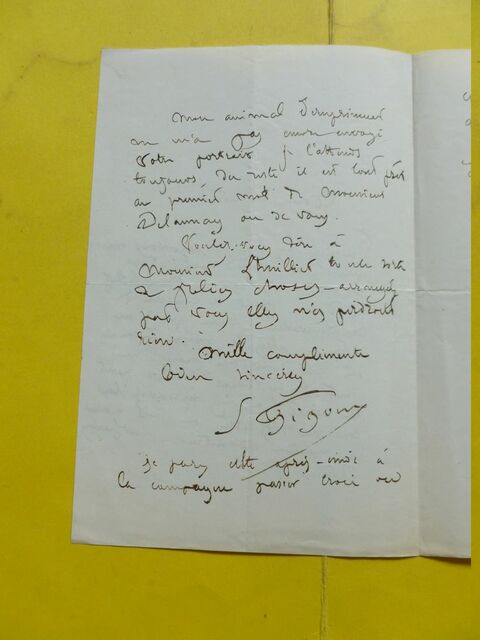 Mon animal d'imprimeur
ne m'a pas encore envoyé
votre portrait je l'attends
toujours, du reste il est tout prêt
au premier mot de Monsieur
Delaunay ou de vous.
Voulez-vous dire à
Monsieur Lhuillier toute sorte
de jolies choses - arrangées
par vous elles n'y perdront
rien.
Mille compliments
bien sincères
J Gigoux
je pars cette après-midi à
la campagne passer trois ou